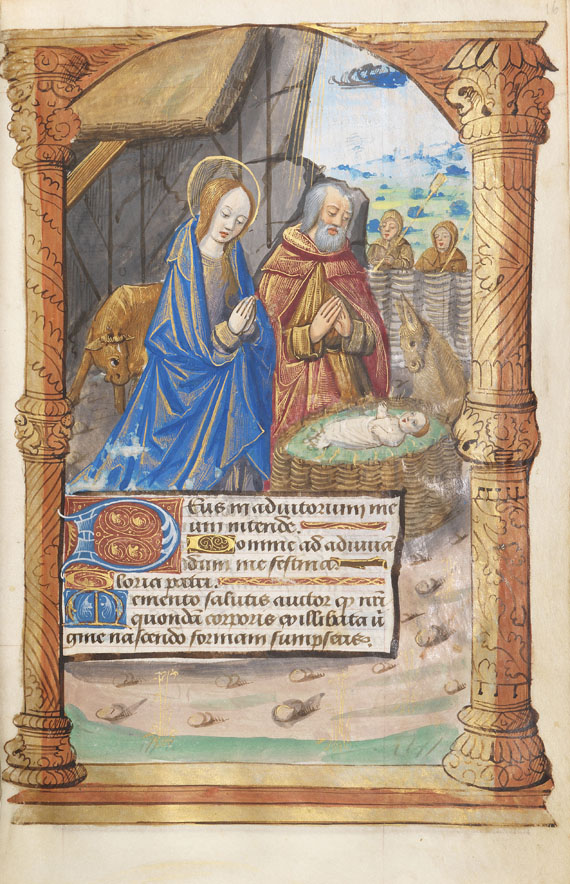 16
Deus in adiutorium me
um intende.
Domine ad adiuuã
dum me festina
Gloria patri.
Memento salutis auctor qꝫ nr̃i
quondã corporis ex illibata ũ
gine nascendo formam sumpseris.